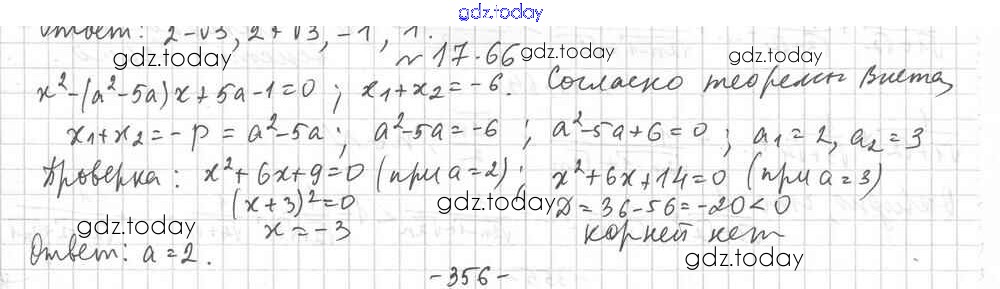 gdz.today
Ответ: 2-√3, 2+√3, -1, 1.
gdz.today
№ 17.66 gdz.today
gdz.today
x²-(a²-5a)x+5a-1=0; x₁+x₂=-6. Согласно теоремы Виета,
x₁+x₂=-p=a²-5a; a²-5a=-6; a²-5a+6=0; a₁=2, a₂=3
Проверка: x²+6x+9=0 (при a=2); x²+6x+14=0 (при a=3)
(x+3)²=0 gdz.today D=36-56=-20<0
gdz.today
x=-3 корней нет
Ответ: a=2. gdz.today
-356-